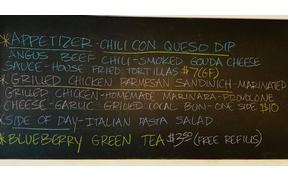 *APPETIZER-CHILI CON QUESO DIP
ANGUS BEEF CHILI-SMOKED GOUDA CHEESE
SAUCE-HOUSE FRIED TORTILLAS $7(GF)
*GRILLED CHICKEN PARMESAN SANDWICH-MARINATED
GRILLED CHICKEN-HOMEMADE MARINARA-PROVOLONE
CHEESE-GARLIC GRILLED LOCAL BUN-ONE SIDE $10
(SIDE OF DAY-ITALIAN PASTA SALAD
*BLUEBERRY GREEN TEA $3.50 (FREE REFILLS)